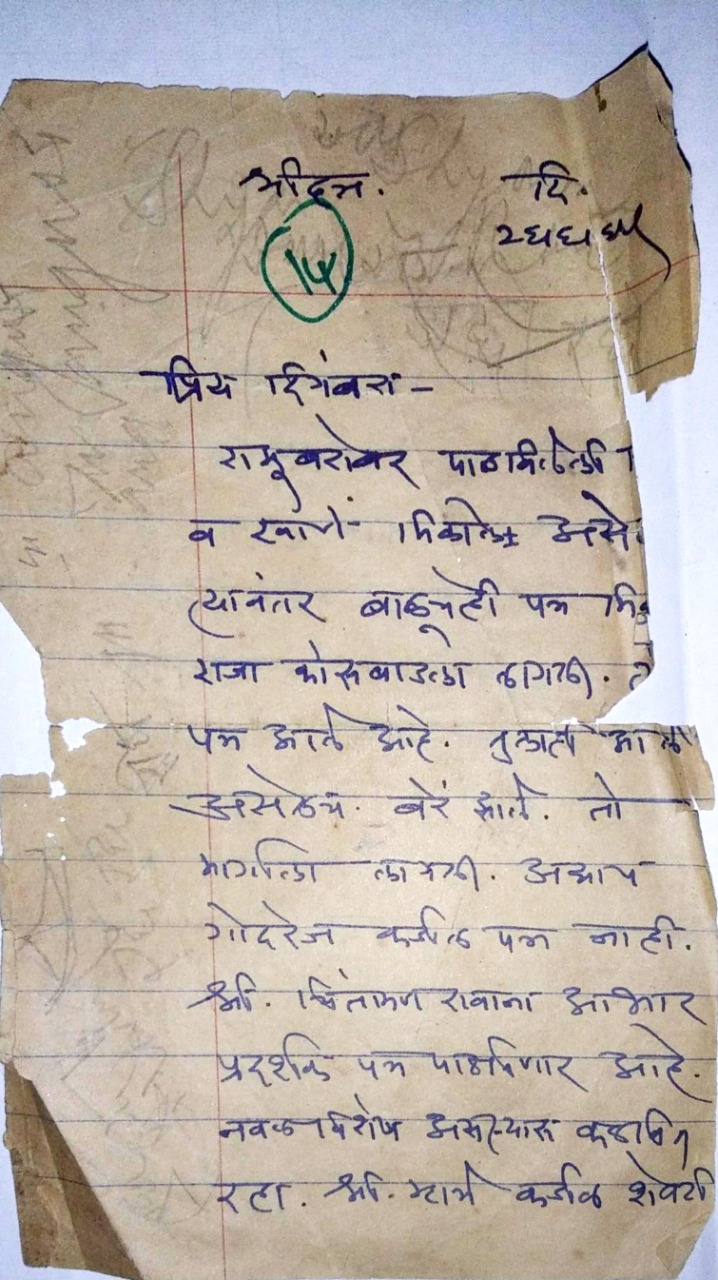 श्रीदत्त. दि.
१५
प्रिय दिगंबरा -
रामूबरोबर पाठविलेली
व रवाणे मिळाले असे
त्यानंतर बाळूचेही पत्र मि
राजा कोसबाडला लागला.
पत्र आले आहे. तुलाही आले
असेलच. बरें झाले. तो
मार्गाला लागला. अद्याप
गोदरेज कडील पत्र नाही.
श्री. चिंतामण रावांना आभार
प्रदर्शक पत्र पाठविणार आहे.
नवल विशेष असल्यास कळवित
रहा. श्री. कडील शेवटी